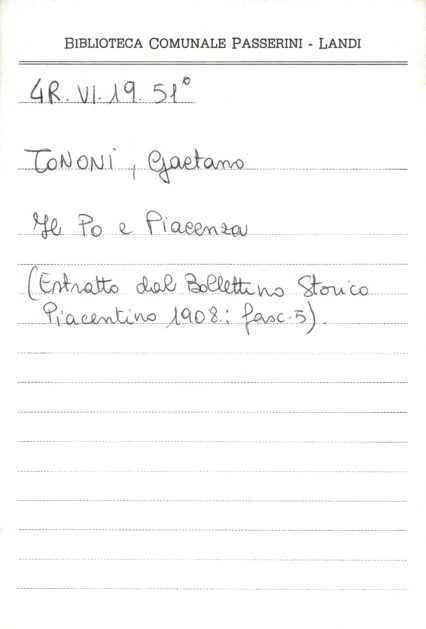 BIBLIOTECA COMUNALE PASSERINI - LANDI
4R. VI. 19. 51°
TONONI, Gaetano
Il Po e Piacenza
(Estratto dal Bollettino Storico
Piacentino 1908: fasc. 5).